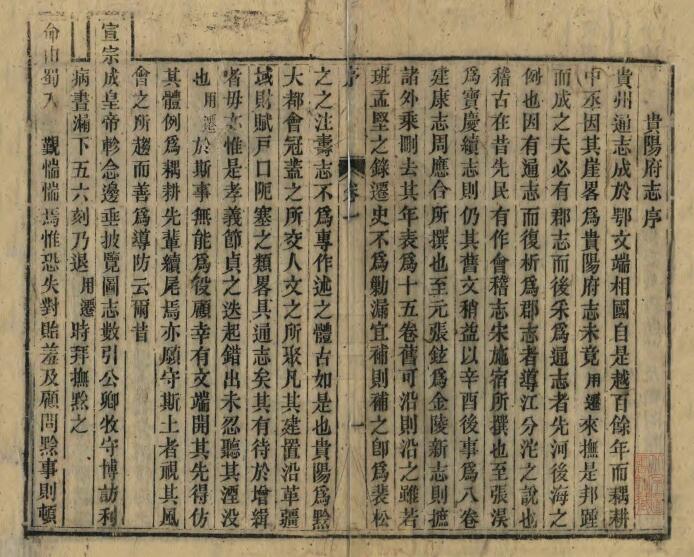 貴陽府志序
貴州通志成於鄂文端相國自是越百餘年而耦耕
中丞因其崖畧為貴陽府志未竟用遷來撫是邦踵
而成之夫必有郡志而後采為通志者先河後海之
例也因有通志而復析為郡志者導江分沱之說也
稽古在昔先民有作會稽志宋施宿所撰也至張淏
為寶慶續志則仍其舊文稍益以辛酉後事為八卷
建康志周應合所撰也至元張鉉為金陵新志則摭
諸外乘刪去其年表為十五卷舊可沿則沿之雖若
班孟堅之錄遷史不為勦漏宜補則補之卽為裴松
序 卷一 一
之之注壽志不為專作述之體古如是也貴陽為黔
大都會冠蓋之所交人文之所聚凡其建置沿革疆
域財賦戸口阨塞之類畧具通志矣其有待於增緝
者毋亦惟是孝義節貞之迭起錯出未忍聽其湮没
也用遷於斯事無能為役顧幸有文端開其先得仿
其體例為耦耕先輩續尾焉亦願守斯土者視其風
會之所趨而善為導防云爾昔
宣宗成皇帝軫念邊垂披覽圖志數引公卿牧守博訪利
病晝漏下五六刻乃退用遷時拜撫黔之
命由蜀入覲惴惴焉惟恐失對貽羞及顧問黔事則頓